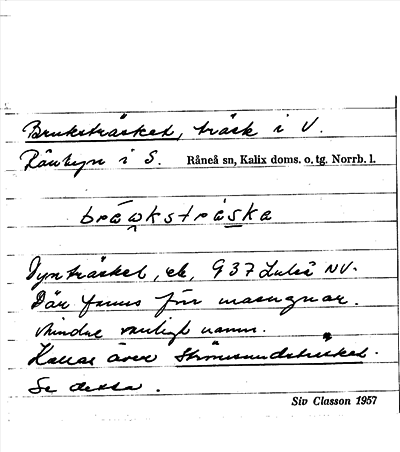 Bruksträsket, träsk i V.
Råntyn i S. Råneå sn, Kalix doms. o. tg. Norrb. l.
bråw̭kstrȧska
träsket, ek. 937 Luleå NV.
Där fanns förr masugnar.
Mindre vanligt namn.
Kallas även Strömsundsträsket.
Se detta.
Siv Classon 1957